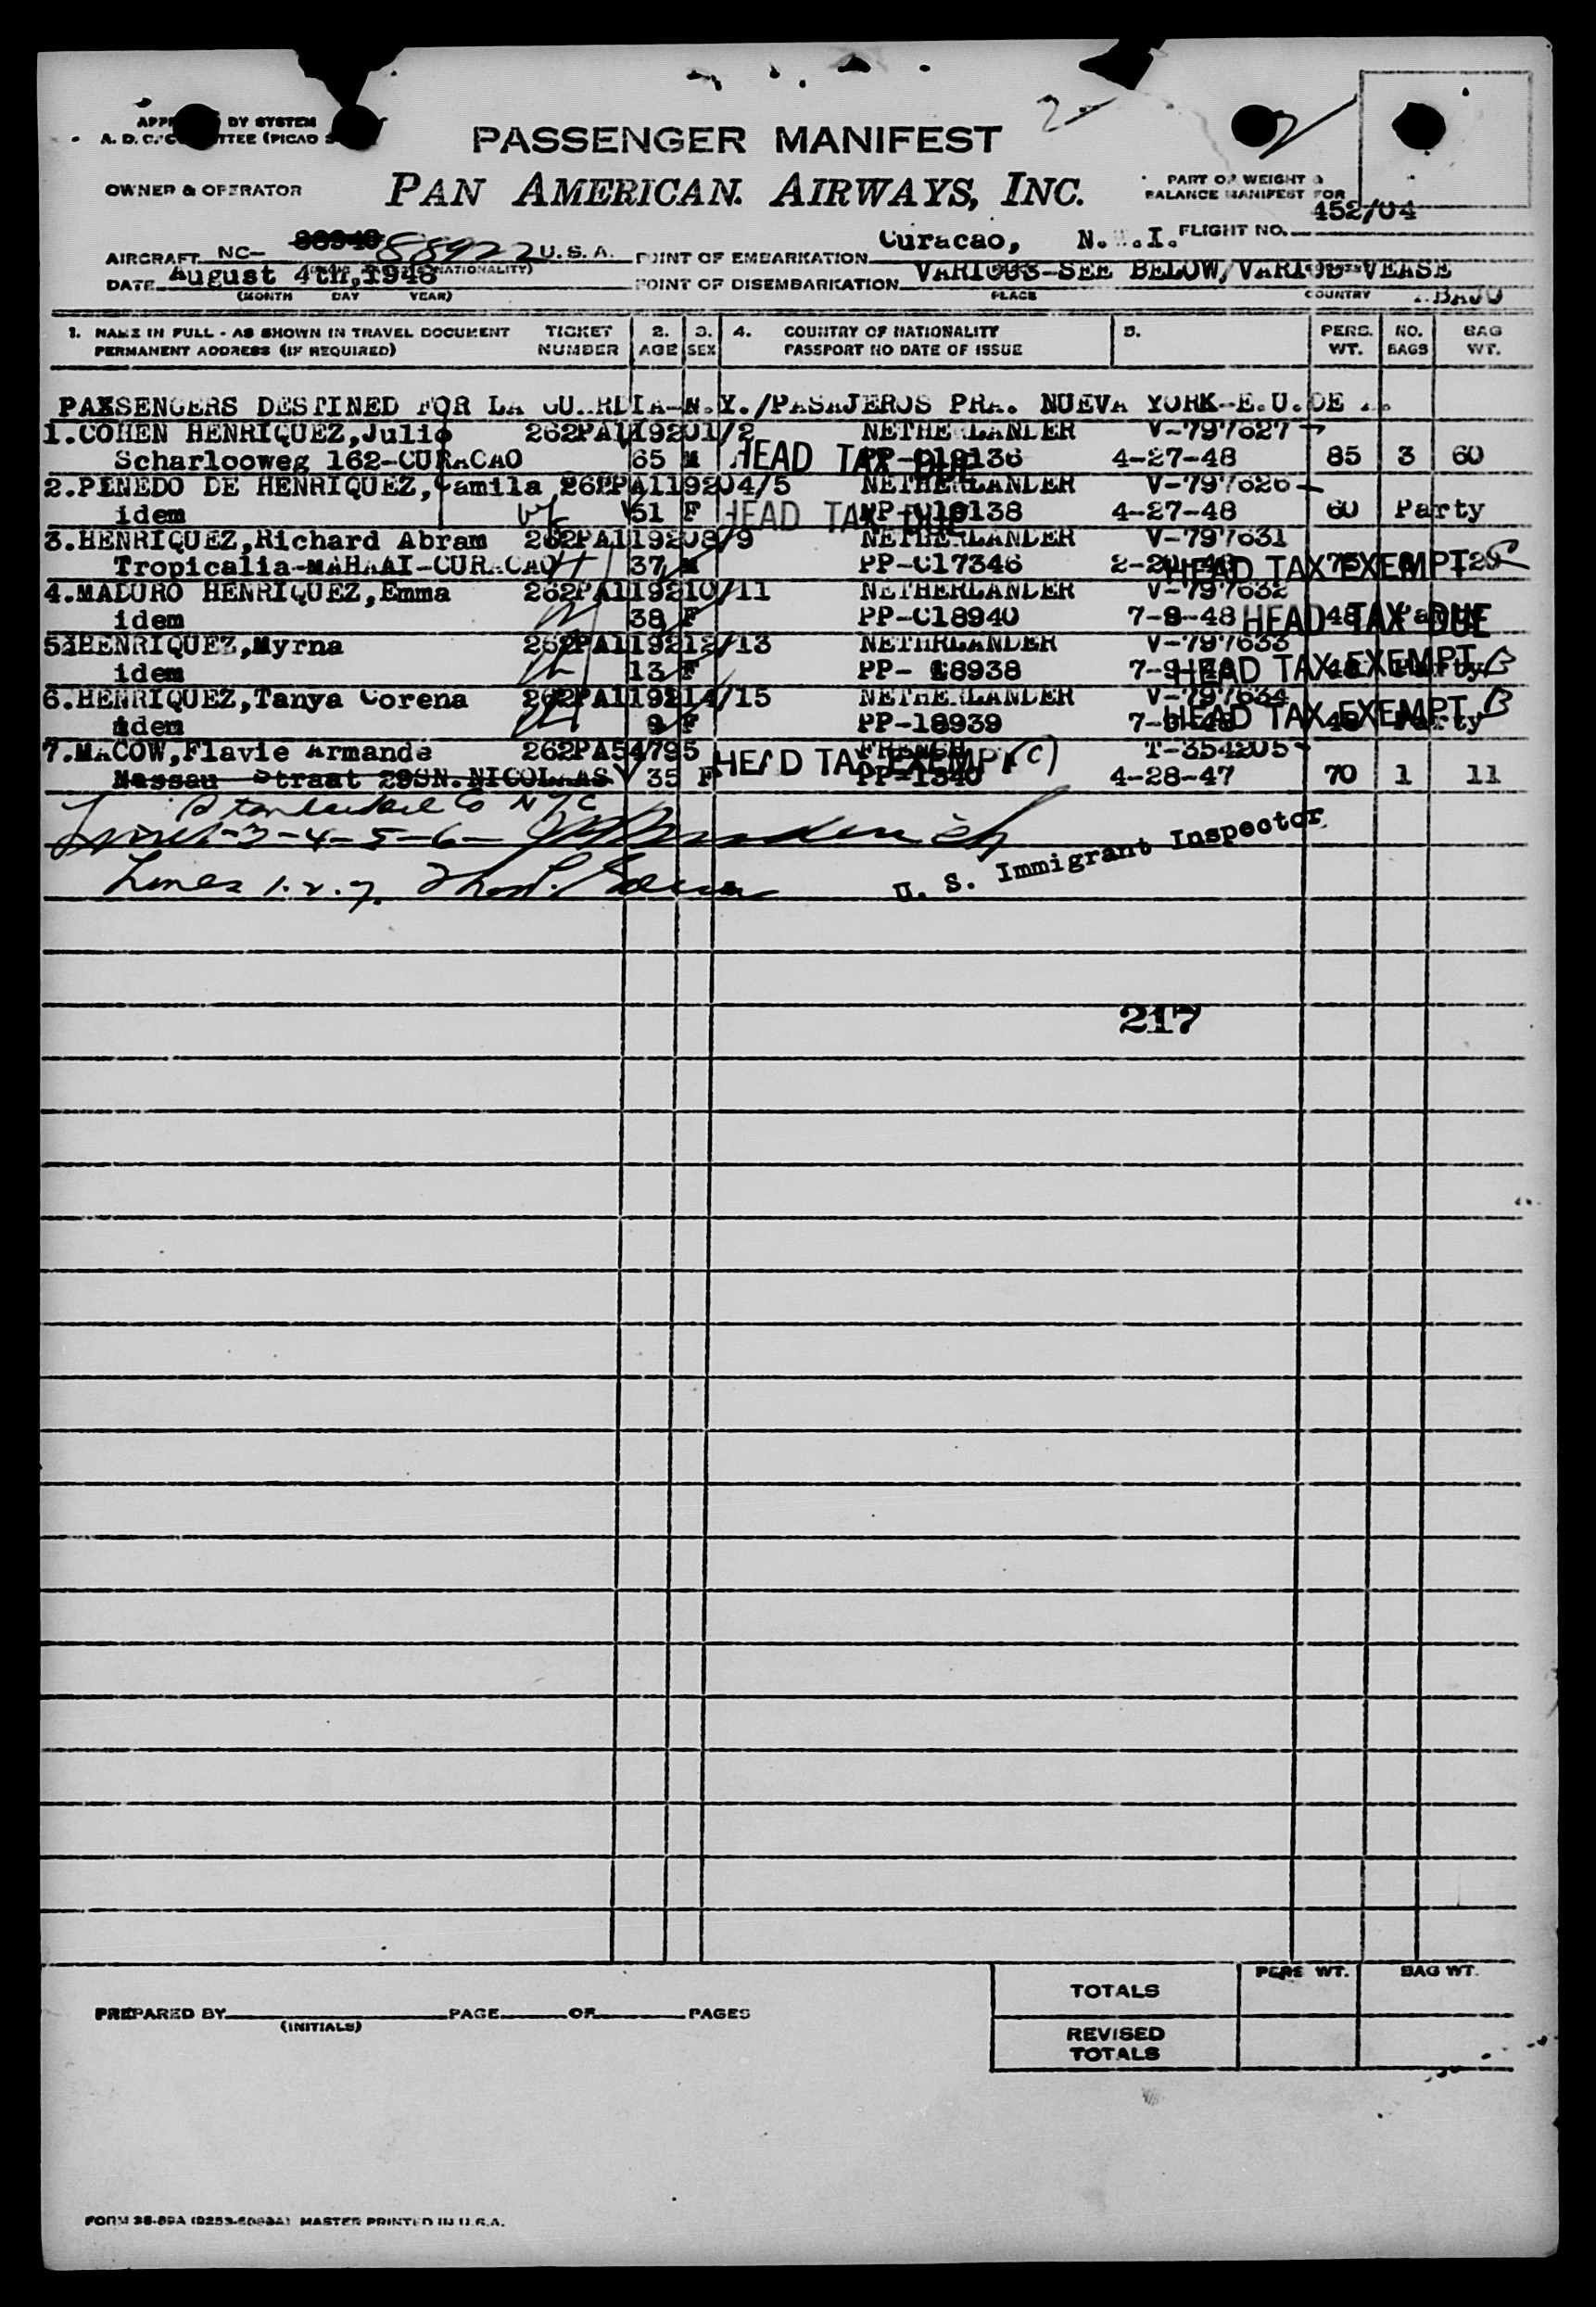 BY SYSTEM
A. D. C.
PASSENGER MANIFEST
OWNER & OPERATOR
PAN AMERICAN AIRWAYS, INC.
PART OF WEIGHT &
BALANCE MANIFEST FOR
FLIGHT NO. 452/04
AIRCRAFT NC- 88940 88922 U.S.A. POINT OF EMBARKATION Curacao, N.W.I.
DATE August 4th,1948 POINT OF DISEMBARKATION VARIOUS-SEE BELOW/VARIOS-VEASE
(MONTH DAY YEAR) PLACE COUNTRY
1. NAME IN FULL - AS SHOWN IN TRAVEL DOCUMENT TICKET 2. 3. 4. COUNTRY OF NATIONALITY 5. PERS. NO. BAG
PERMANENT ADDRESS (IF REQUIRED) NUMBER AGE SEX PASSPORT NO DATE OF ISSUE WT. BAGS WT.
PAXSENGERS DESTINED FOR LA GUARDIA-N.Y./PASAJEROS PRA. NUEVA YORK-E.U.DE A.
1.COHEN HENRIQUEZ,Julio 262PA119201/2 NETHERLANDER V-797627
Scharlooweg 162-CURACAO 65 M HEAD TAX DUE PP-C18136 4-27-48 85 3 60
2.PINEDO DE HENRIQUEZ,Camila 262PA119204/5 NETHERLANDER V-797626
idem 51 F HEAD TAX DUE PP-C18138 4-27-48 60 Party
3.HENRIQUEZ,Richard Abram 262PA119208/9 NETHERLANDER V-797631
Tropicalia-MAHAAI-CURACAO 37 M PP-C17346 HEAD TAX EXEMPT
4.MADURO HENRIQUEZ,Emma 262PA119210/11 NETHERLANDER V-797632
idem 38 F PP-C18940 7-9-48 HEAD TAX DUE 48 Party
5.HENRIQUEZ,Myrna 262PA119212/13 NETHRLANDER V-797633
idem 13 F PP- 18938 HEAD TAX EXEMPT B
6.HENRIQUEZ,Tanya Corena 262PA119214/15 NETHERLANDER V-797634
idem 9 F PP-18939 HEAD TAX EXEMPT B
7.MACOW,Flavie Armande 262PA54795 FRENCH T-354205
Nassau Straat 29SN.NICOLAAS 35 F HEAD TAX EXEMPT (C) PP-1340 4-28-47 70 1 11
-3-4-5-6-
Lines 1.2.7.
U. S. Immigrant Inspector
217
TOTALS PERS WT. BAG WT.
PREPARED BY PAGE OF PAGES
(INITIALS)
REVISED
TOTALS
MASTER PRINTED IN U.S.A.